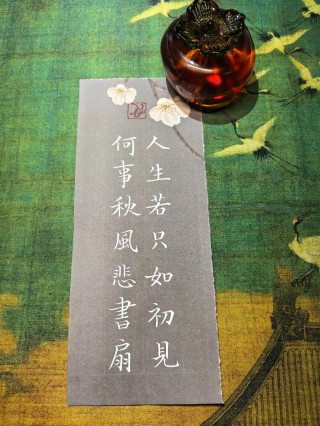 人生若只如初見
何事秋風悲書扇